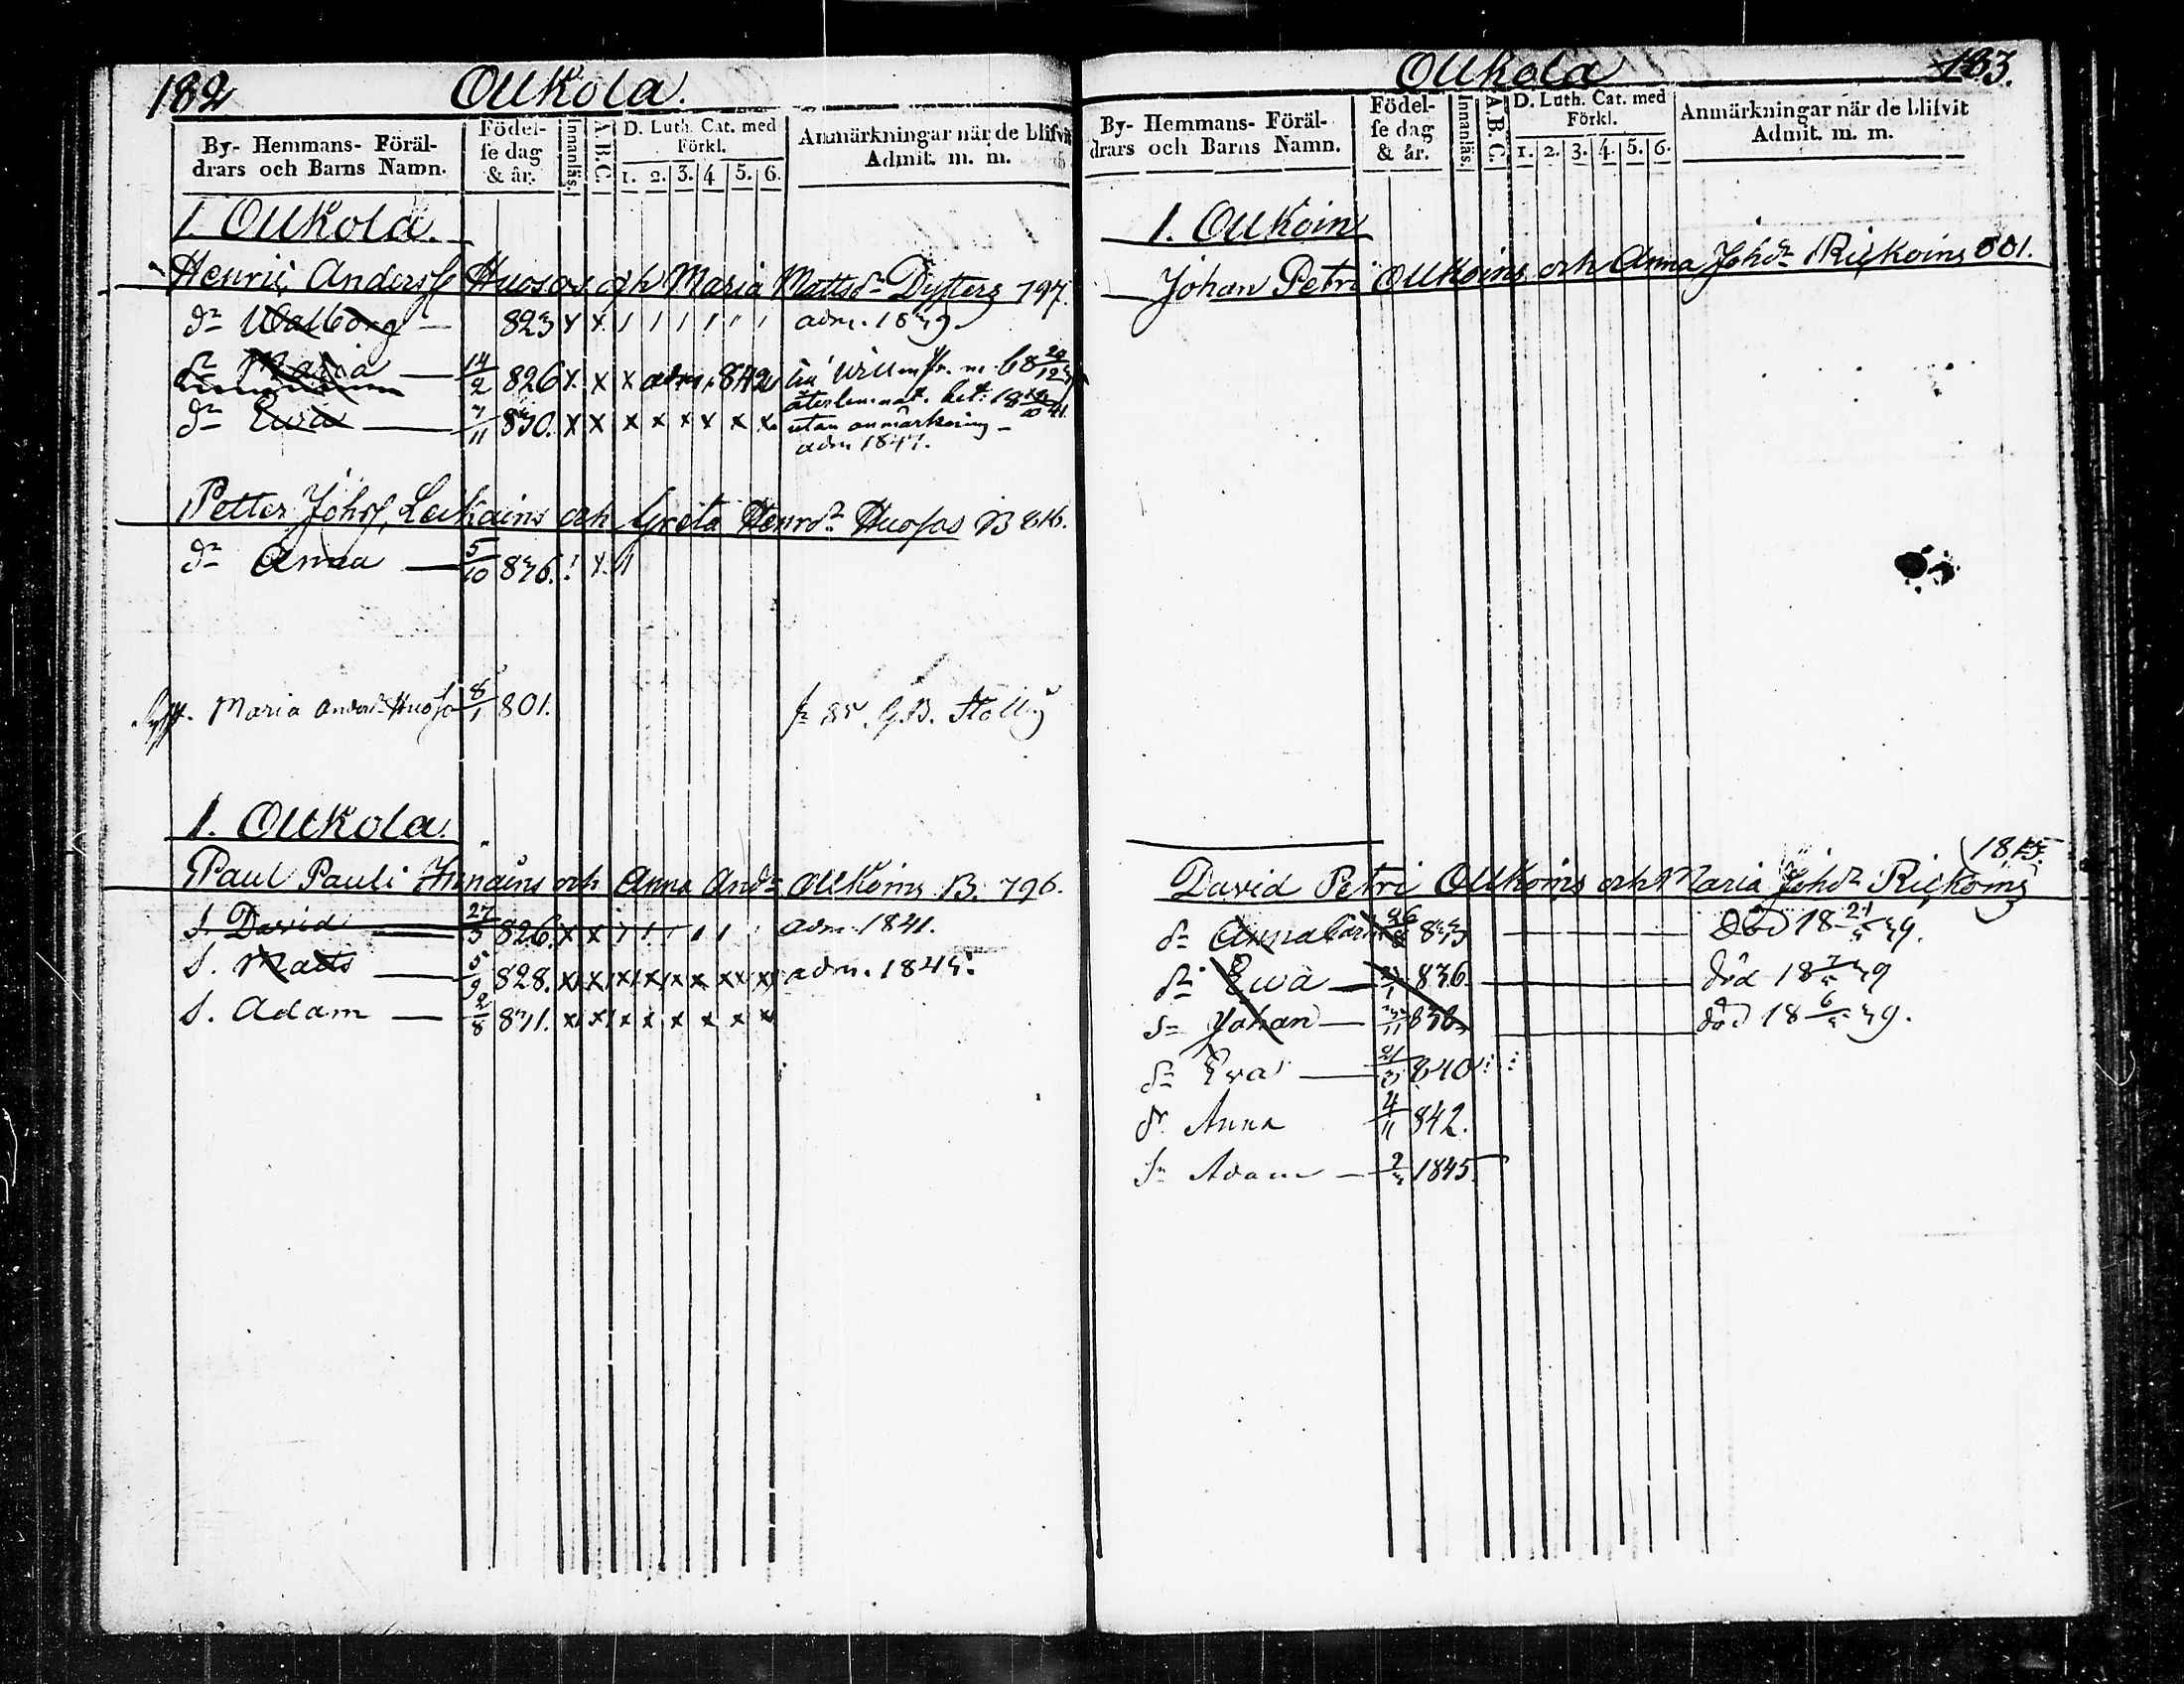 182 Ollkola.
By- Hemmans- Föräl-
drars och Barns Namn.
Födel-
se dag
& år.
Innanläs.
A.B.C.
D. Luth. Cat. med
Förkl.
1. 2. 3. 4 5. 6.
Anmärkningar när de blifvit
Admit. m. m.
1. Ollkola.
Henric Anderss Huosas och Maria Mattsdr Dytters 797.
dr Walborg — 823 x x / / / / / / adm. 1839.
dr Maria — 14/2 826 x. x x adm. 842
återlemnat. bet:
dr Ewa — 7/11 830. x x x x x x x x. utan anmärkning –
adm 1847.
Petter Johss, Leikains och Greta Henrdr Huosas B 816.
dr Anna — 5/10 836.
Maria Andersdr Huosa 8/1 801.
1. Ollkola.
Paul Pauli Innains och Anna Anddr Ollkoins B. 796.
S. David — 27/3 826. x x / / / / / / adm. 1841.
S. Matts — 5/9 828. x x x x x x x x adm. 1845.
S. Adam — 2/8 831. x x x x x x x x
Ollkola 183.
By- Hemmans- Föräl-
drars och Barns Namn.
Födel-
se dag
& år.
Innanläs.
A.B.C.
D. Luth. Cat. med
Förkl.
1. 2. 3. 4. 5. 6.
Anmärkningar när de blifvit
Admit. m. m.
1. Ollkoin
Johan Petri Ollkoins och Anna Johdr Rickoins 801.
1815.
David Petri Ollkoins och Maria Johdr Rickoins
dr Anna 833 — Död 18 21/5 39.
dr Ewa — 836. — död 18 7/5 39
Sn Johan — 838 — död 18 6/5 39.
dr Eva — 21/3 840
dr Anna 4/11 842.
Sn Adam — 2/3 1845.